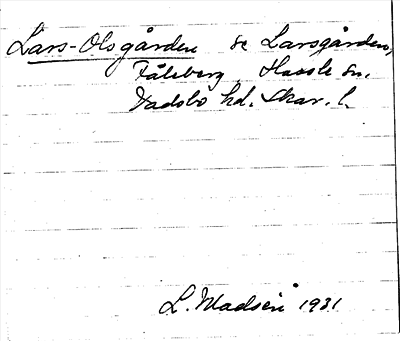 Lars-Olsgården se Larsgården,
Fåleberg, Hassle sn,
Vadsbo hd. Skar. l.
L. Madsén 1931